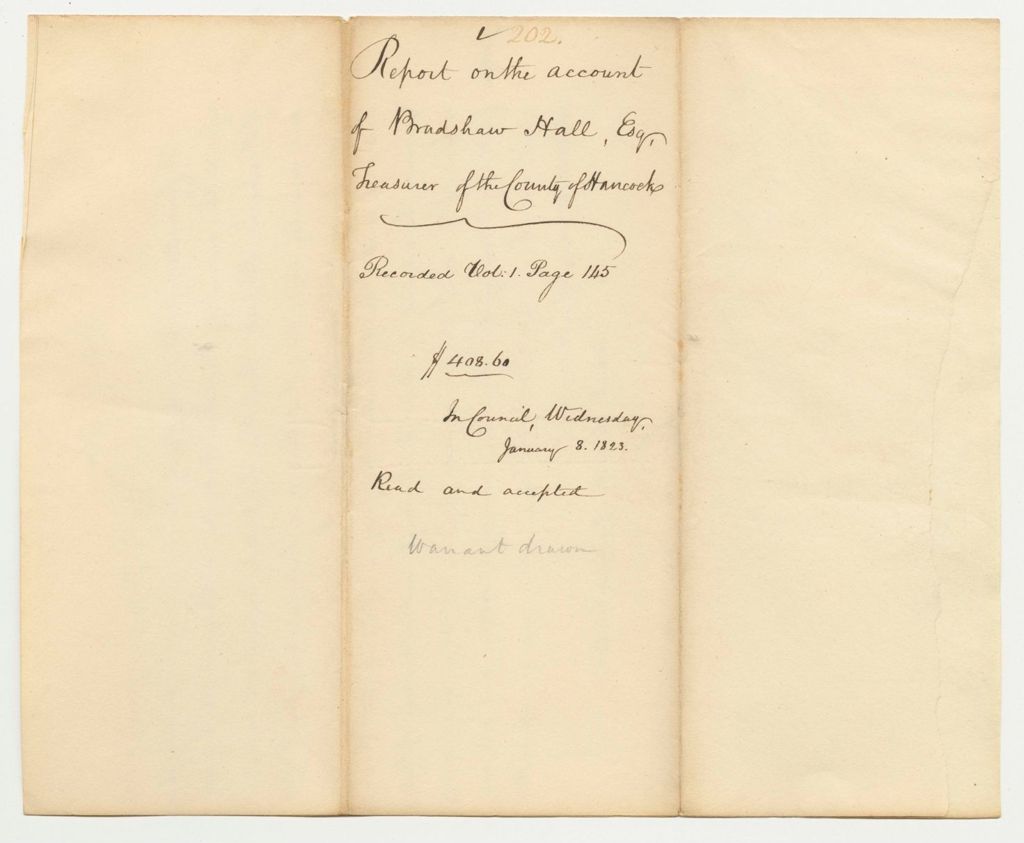 ✓ 202.
Report on the account
of Bradshaw Hall, Esq,
Treasurer of the County of Hancock
Recorded Vol: 1. Page 145
$408.60
In Council, Wednesday,
January 8. 1823.
Read and accepted
Warrant drawn